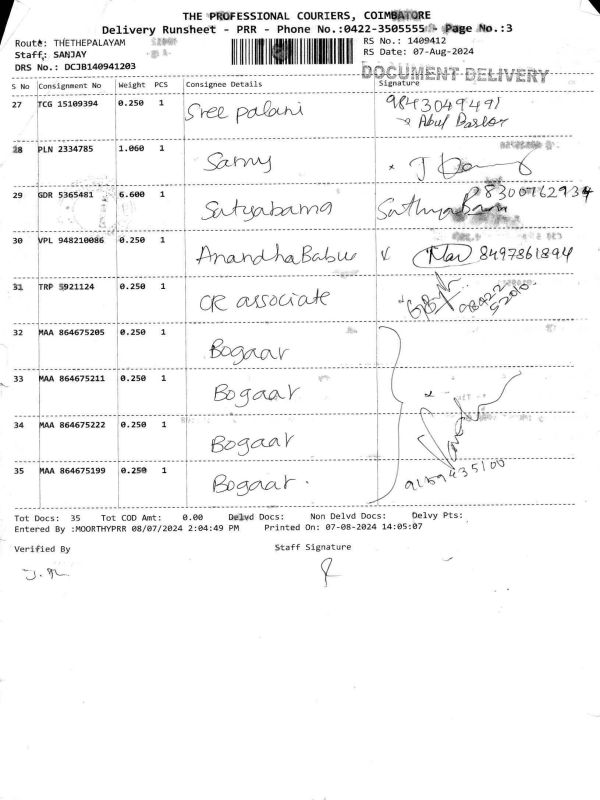 THE PROFESSIONAL COURIERS, COIMBATORE
Delivery Runsheet - PRR - Phone No.:0422-3505555 - Page No.:3
Route: THETHEPALAYAM
RS No.: 1409412
Staff: SANJAY
RS Date: 07-Aug-2024
DRS No.: DCJB140941203
DOCUMENT DELIVERY
S No Consignment No Weight PCS Consignee Details Signature
27 TCG 15109394 0.250 1 Sree palani 9843049491
28 PLN 2334785 1.060 1 Samy
29 GDR 5365481 6.600 1 Satyabama Sathyabama 8300762934
30 VPL 948210086 0.250 1 AnandhaBabu 8497861894
31 TRP 5921124 0.250 1 CR associate
32 MAA 864675205 0.250 1 Bogaar
33 MAA 864675211 0.250 1 Bogaar
34 MAA 864675222 0.250 1 Bogaar
35 MAA 864675199 0.250 1 Bogaar.
9159435100
Tot Docs: 35 Tot COD Amt: 0.00 Delvd Docs: Non Delvd Docs: Delvy Pts:
Entered By :MOORTHYPRR 08/07/2024 2:04:49 PM Printed On: 07-08-2024 14:05:07
Verified By Staff Signature